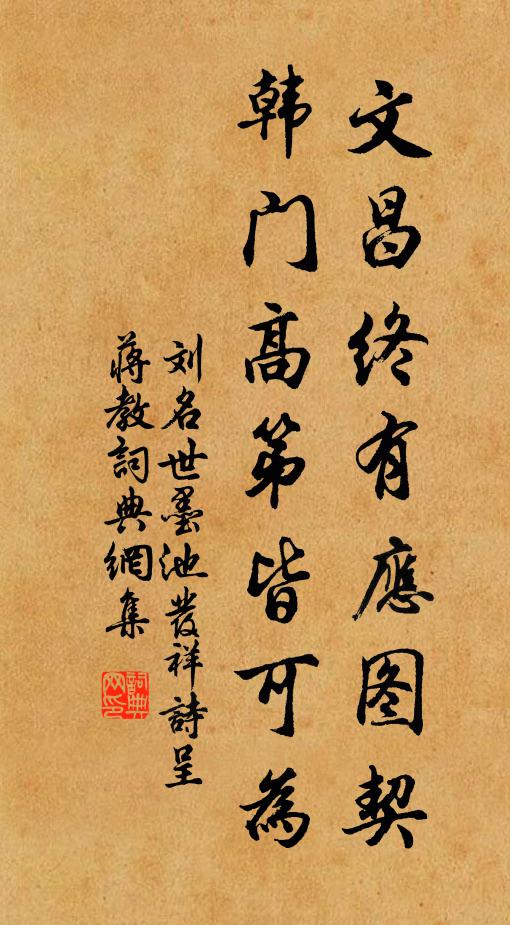 文昌终有應图契
韩门高第皆可為
刘名世墨池发祥詩呈
蒋教詞典網集
詞典网印